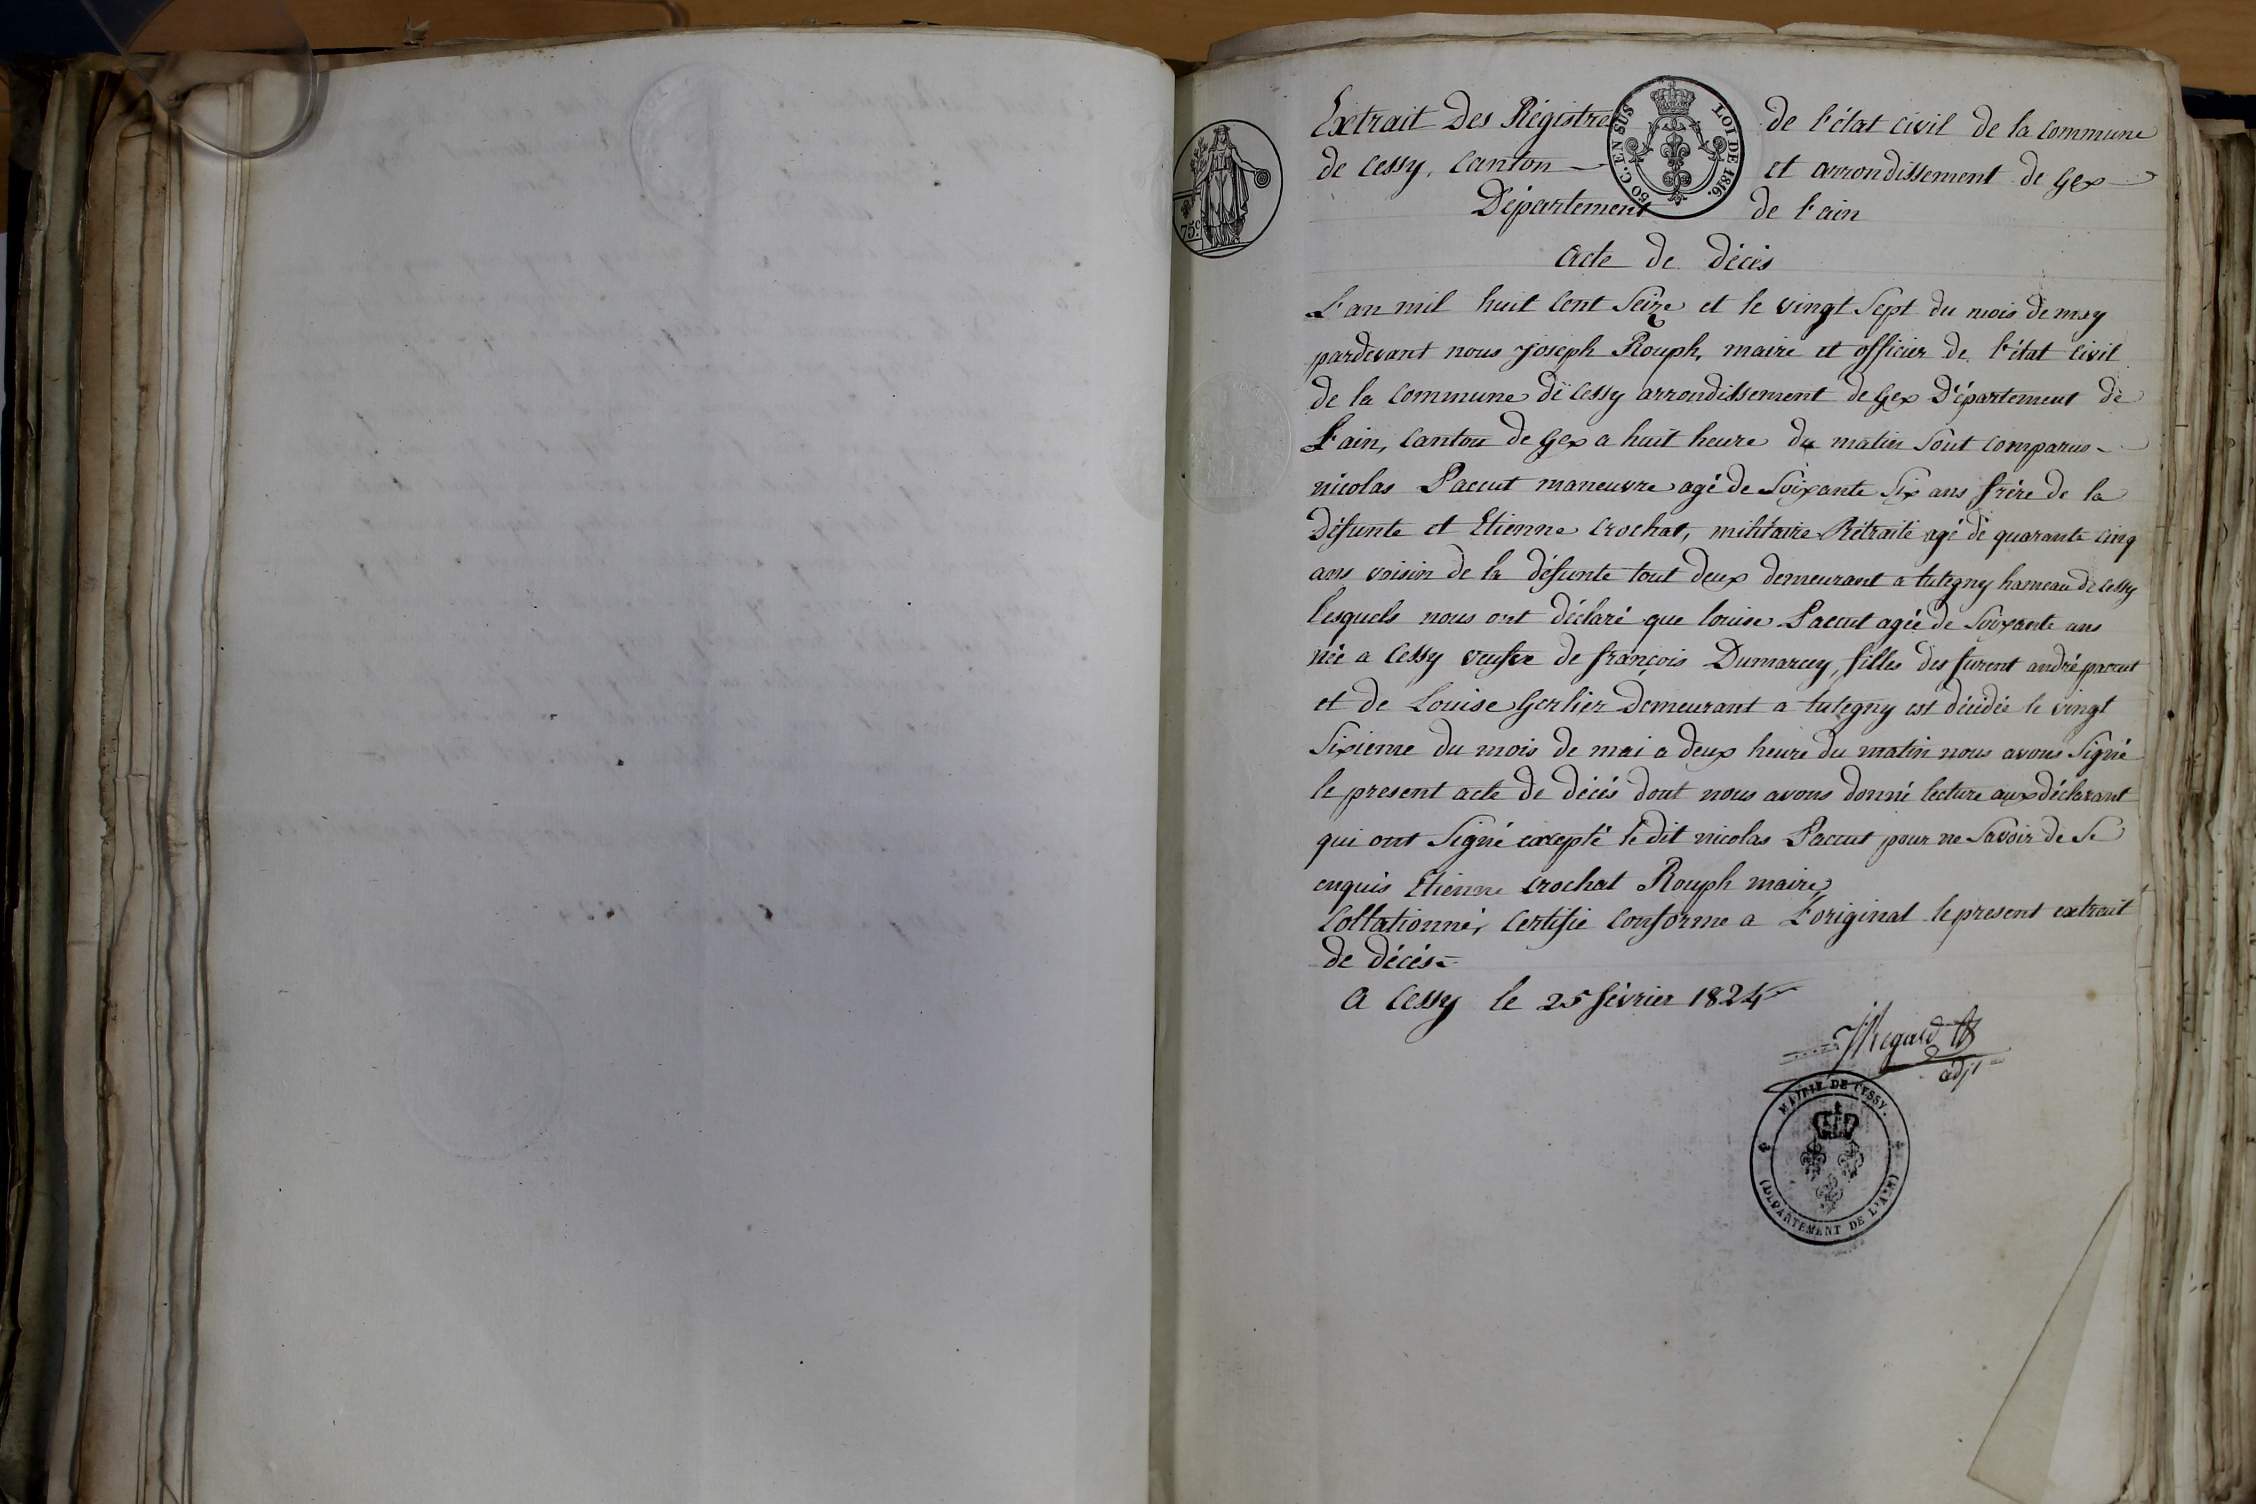 Extrait Des Régistre de l'état civil de la commune
de Cessy, Canton et arrondissement de Gex
Département de l'ain
50 C. EN SUS LOI DE 1816.
75c
acte de décés
L'an mil huit Cent Seize et le vingt Sept du mois de may
pardevant nous joseph Rouph, maire et officier de l'état Civil
de la Commune de Cessy arrondissement de Gex Département de
L'ain, Canton de Gex a huit heure du matin Sont Comparus
nicolas Paccut maneuvre agé de Soixante Six ans frére de la
Défunte et Etienne Crochat, militaire Rétraité agé de quarante cinq
ans voisin de la défunte tout deux demeurant a tutegny hameau de Cessy
lesquels nous ont déclaré que louise Paccut agée de Soixante ans
née a Cessy veufve de françois Dumarcey, filles des furent andré paccut
et de Louise Gerlier Demeurant a tutegny est décédée le vingt
Sixieme du mois de mai a deux heure du matin nous avons Signé
le present acte de décés dont nous avons donné lecture aux déclarant
qui ont Signé excepté le dit nicolas Paccut pour ne Savoir de Se
enquis Etienne Crochat Rouph maire
Collationné, Certifie Conforme a L'original le present extrait
de décés
A Cessy le 25 février 1824
JRegard
adjt
MAIRIE DE CESSY.
(DEPARTEMENT DE L'AIN)